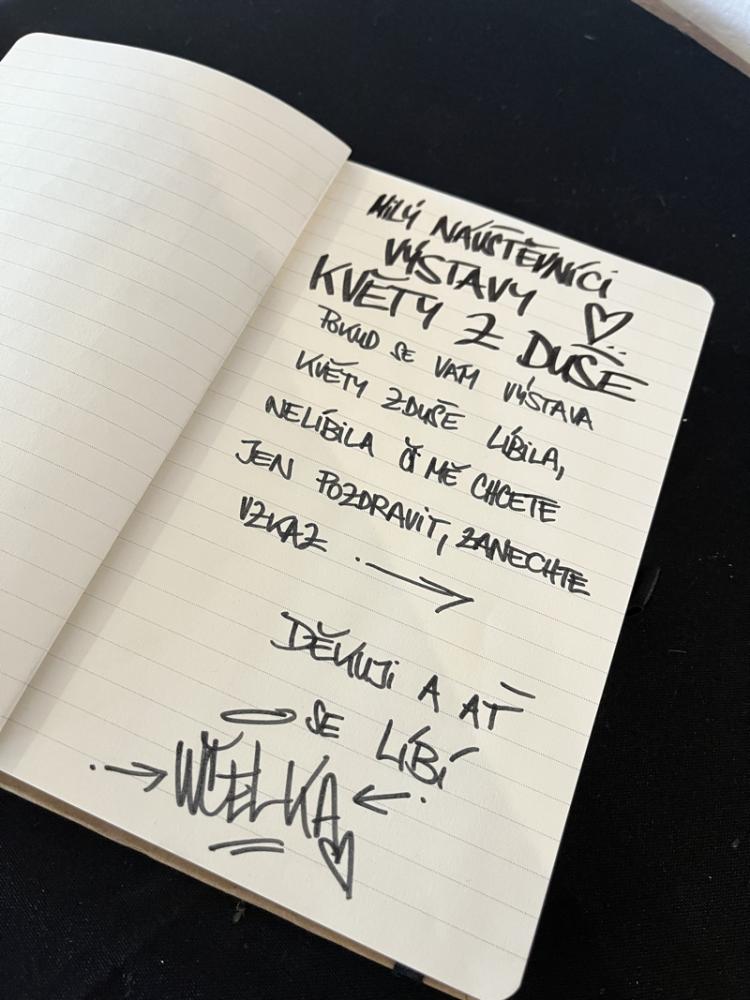 MILÝ NÁVŠTĚVNÍCI
VÝSTAVY
KVĚTY Z DUŠE
POKUD SE VÁM VÝSTAVA
KVĚTY Z DUŠE LÍBILA,
NELÍBILA ČI MĚ CHCETE
JEN POZDRAVIT, ZANECHTE
VZKAZ
DĚKUJI A AŤ
SE LÍBÍ
WČELKA